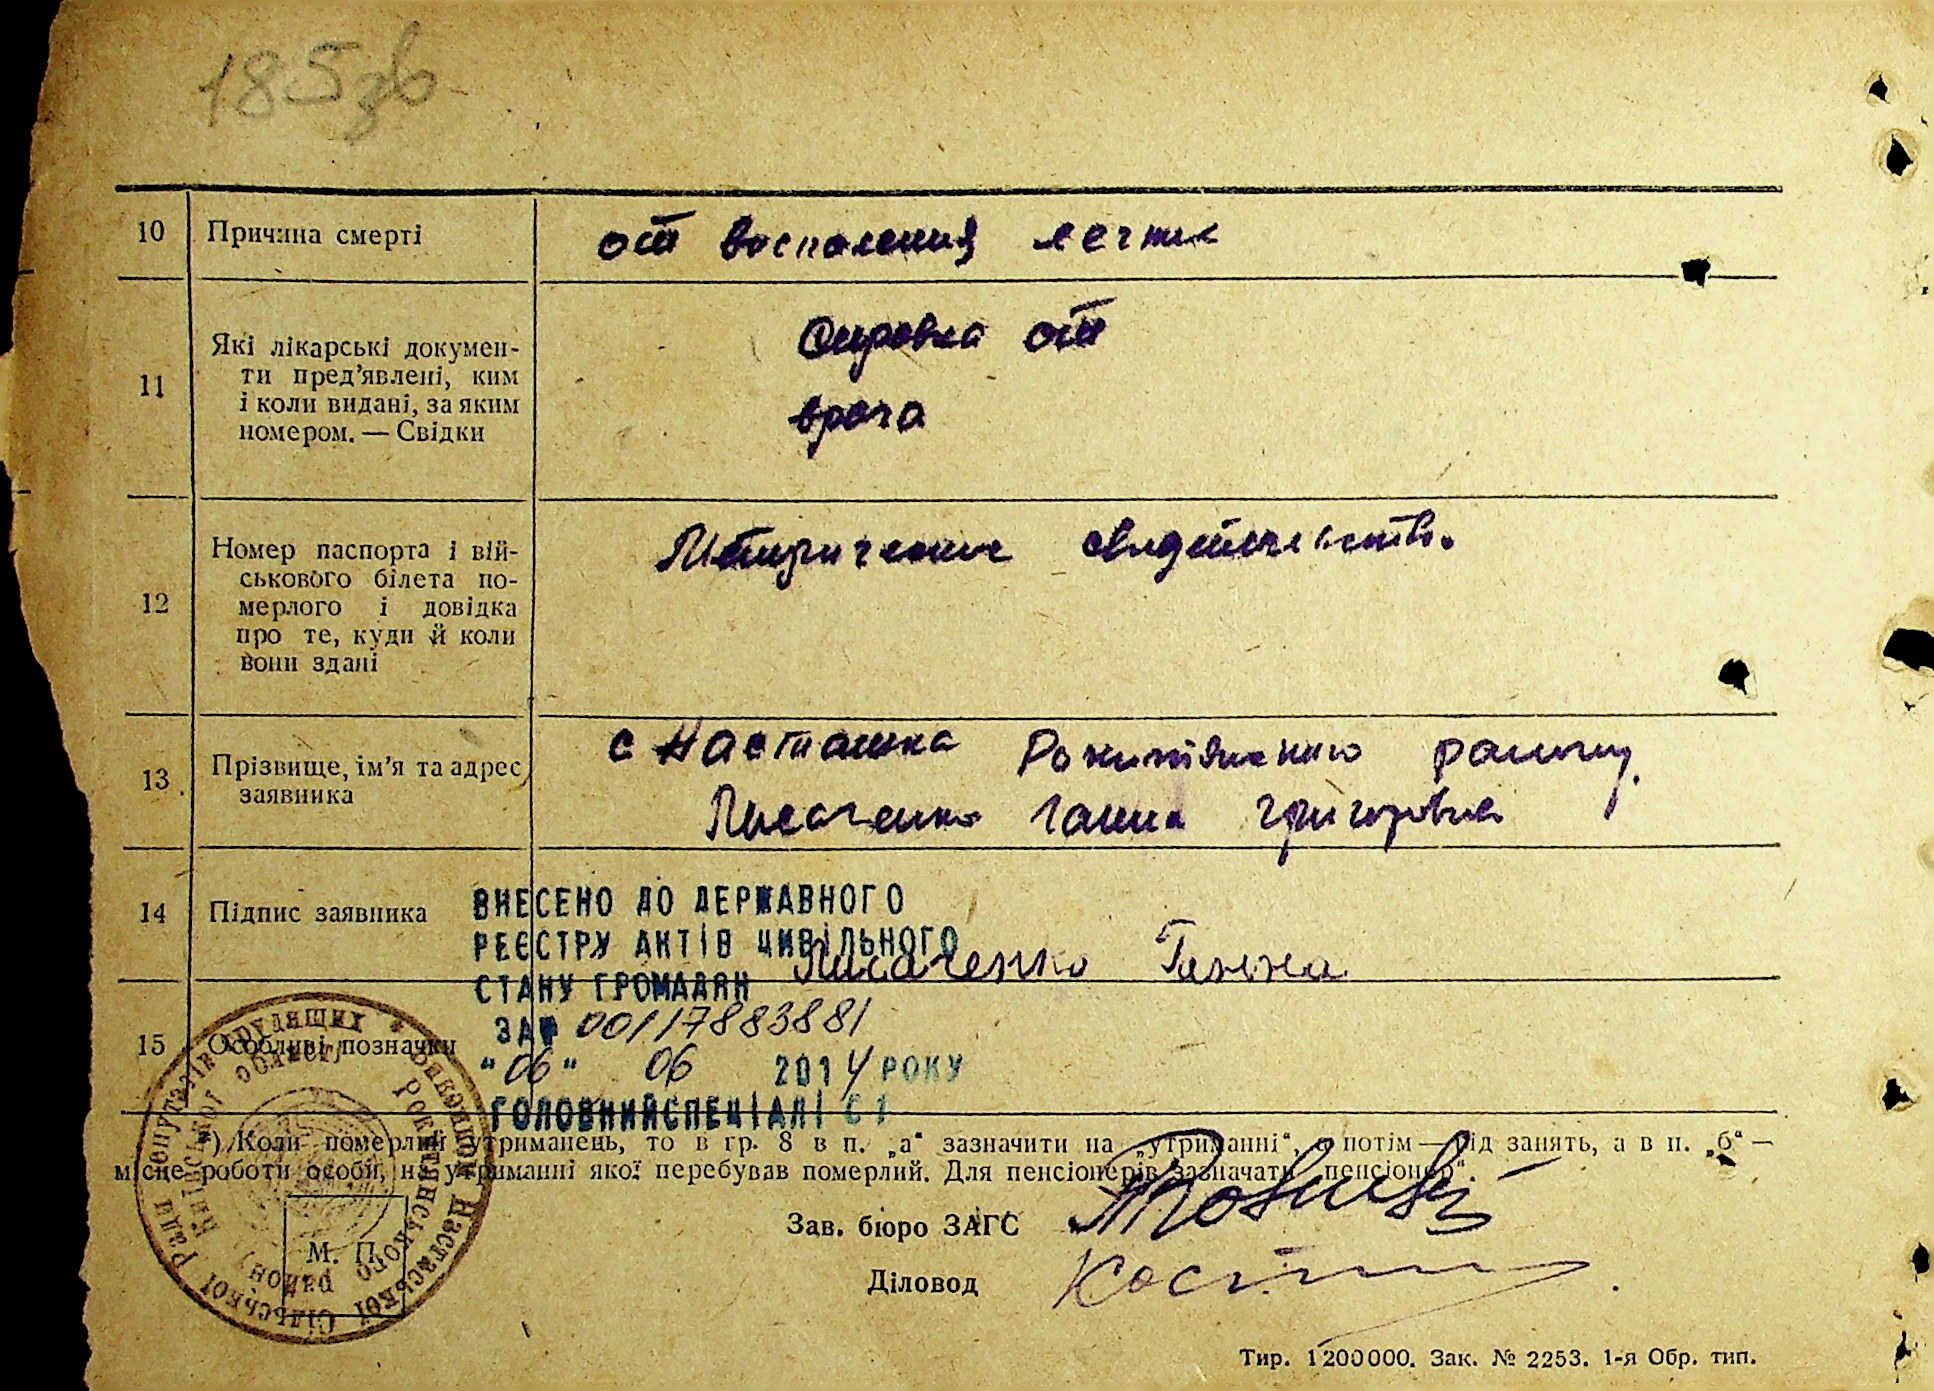 185зв
10 Причина смерті от воспаления легких
11 Які лікарські докумен-
ти пред’явлені, ким
і коли видані, за яким
номером. — Свідки
Справка от
врача
12 Номер паспорта і вій-
ськового білета по-
мерлого і довідка
про те, куди й коли
вони здані
Метрическое свидетельство.
13 Прізвище, ім’я та адрес
заявника
с Насташка Рокитянского району.
Лисаченко Ганна Григоровна
14 Підпис заявника
Лисаченко Ганна
ВНЕСЕНО ДО ДЕРЖАВНОГО
РЕЄСТРУ АКТІВ ЦИВІЛЬНОГО
СТАНУ ГРОМАДЯН
ЗА № 00117883881
"06" 06 2014 РОКУ
ГОЛОВНИЙ СПЕЦІАЛІСТ
15 Особливі позначки
*) Коли померлий утриманець, то в гр. 8 в п. „а“ зазначити на „утриманні“, а потім — рід занять, а в п. „б“ —
місце роботи особи, на утриманні якої перебував померлий. Для пенсіонерів зазначати „пенсіонер“.
Зав. бюро ЗАГС
Діловод
М. П.
Тир. 1200000. Зак. № 2253. 1-я Обр. тип.